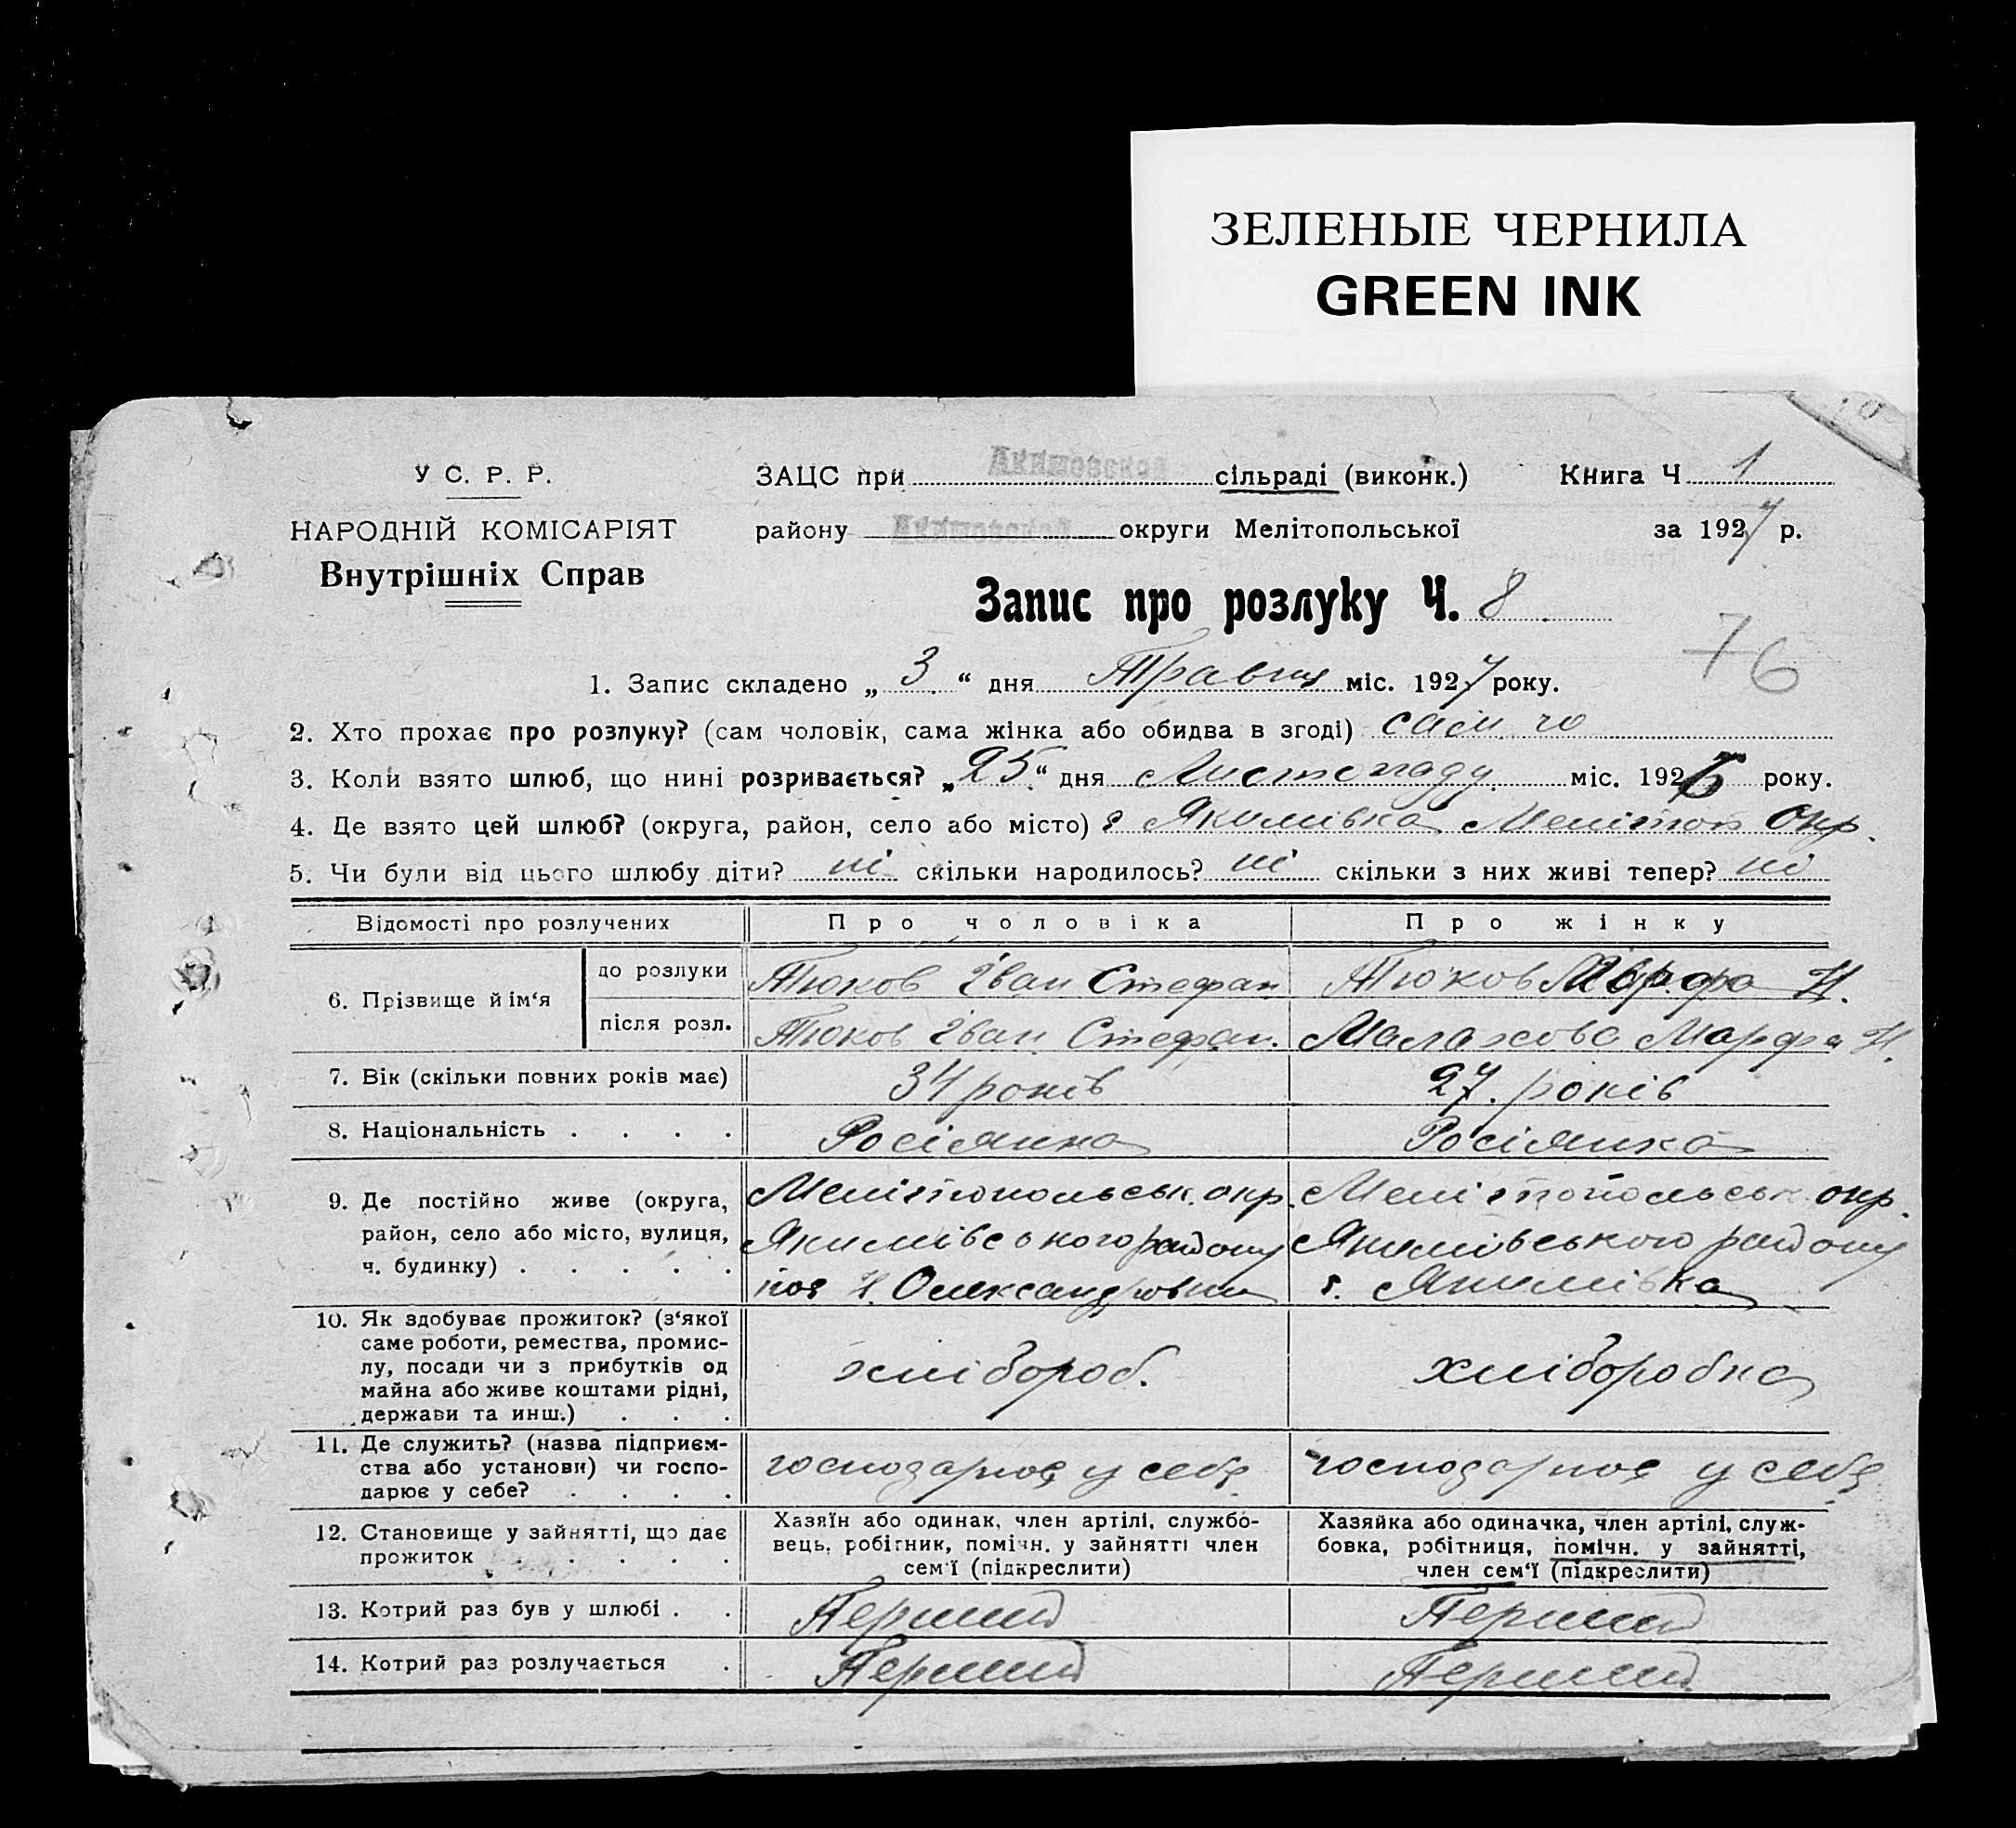 ЗЕЛЕНЫЕ ЧЕРНИЛА
GREEN INK
У С. Р. Р.
НАРОДНІЙ КОМІСАРІЯТ
Внутрішніх Справ
ЗАЦС при Акимовской сільраді (виконк.)
Книга Ч 1
району Акимовской округи Мелітопольської
за 1927 р.
Запис про розлуку Ч. 8
76
1. Запис складено „ 3 “ дня Травня міс. 1927 року.
2. Хто прохає про розлуку? (сам чоловік, сама жінка або обидва в згоді) сам чо
3. Коли взято шлюб, що нині розривається? „25“ дня Листопаду міс. 1926 року.
4. Де взято цей шлюб? (округа, район, село або місто) с Якимівка Меліттоп окр.
5. Чи були від цього шлюбу діти? ні скільки народилось? ні скільки з них живі тепер? ні
Відомості про розлучених
Про чоловіка
Про жінку
6. Прізвище й ім‘я
до розлуки
Тюков Іван Стефан
Тюков Марфа Н.
після розл.
Тюков Іван Стефан.
Малахова Марфа Н.
7. Вік (скільки повних років має)
34 років
27. років
8. Національність . . . .
Росіянина
Росіянка
9. Де постійно живе (округа,
район, село або місто, вулиця,
ч. будинку) . . . . .
Мелітопольськ. окр.
Якимівського району
пос Н. Олександровка
Мелітопольськ. окр.
Якимівського району
с. Якимівка
10. Як здобуває прожиток? (з‘якої
саме роботи, ремества, промис-
лу, посади чи з прибутків од
майна або живе коштами рідні,
держави та инш.) . . .
хлібороб.
хліборобка
11. Де служить? (назва підприєм-
ства або установи) чи госпо-
дарює у себе? . . . .
господарює у себе
господарює у себе
12. Становище у зайнятті, що дає
прожиток . . . . .
Хазяїн або одинак, член артілі, службо-
вець, робітник, помічн. у зайнятті член
сем‘ї (підкреслити)
Хазяйка або одиначка, член артілі, служ-
бовка, робітниця, помічн. у зайнятті,
член сем‘ї (підкреслити)
13. Котрий раз був у шлюбі . .
Перший
Перший
14. Котрий раз розлучається .
Перший
Перший